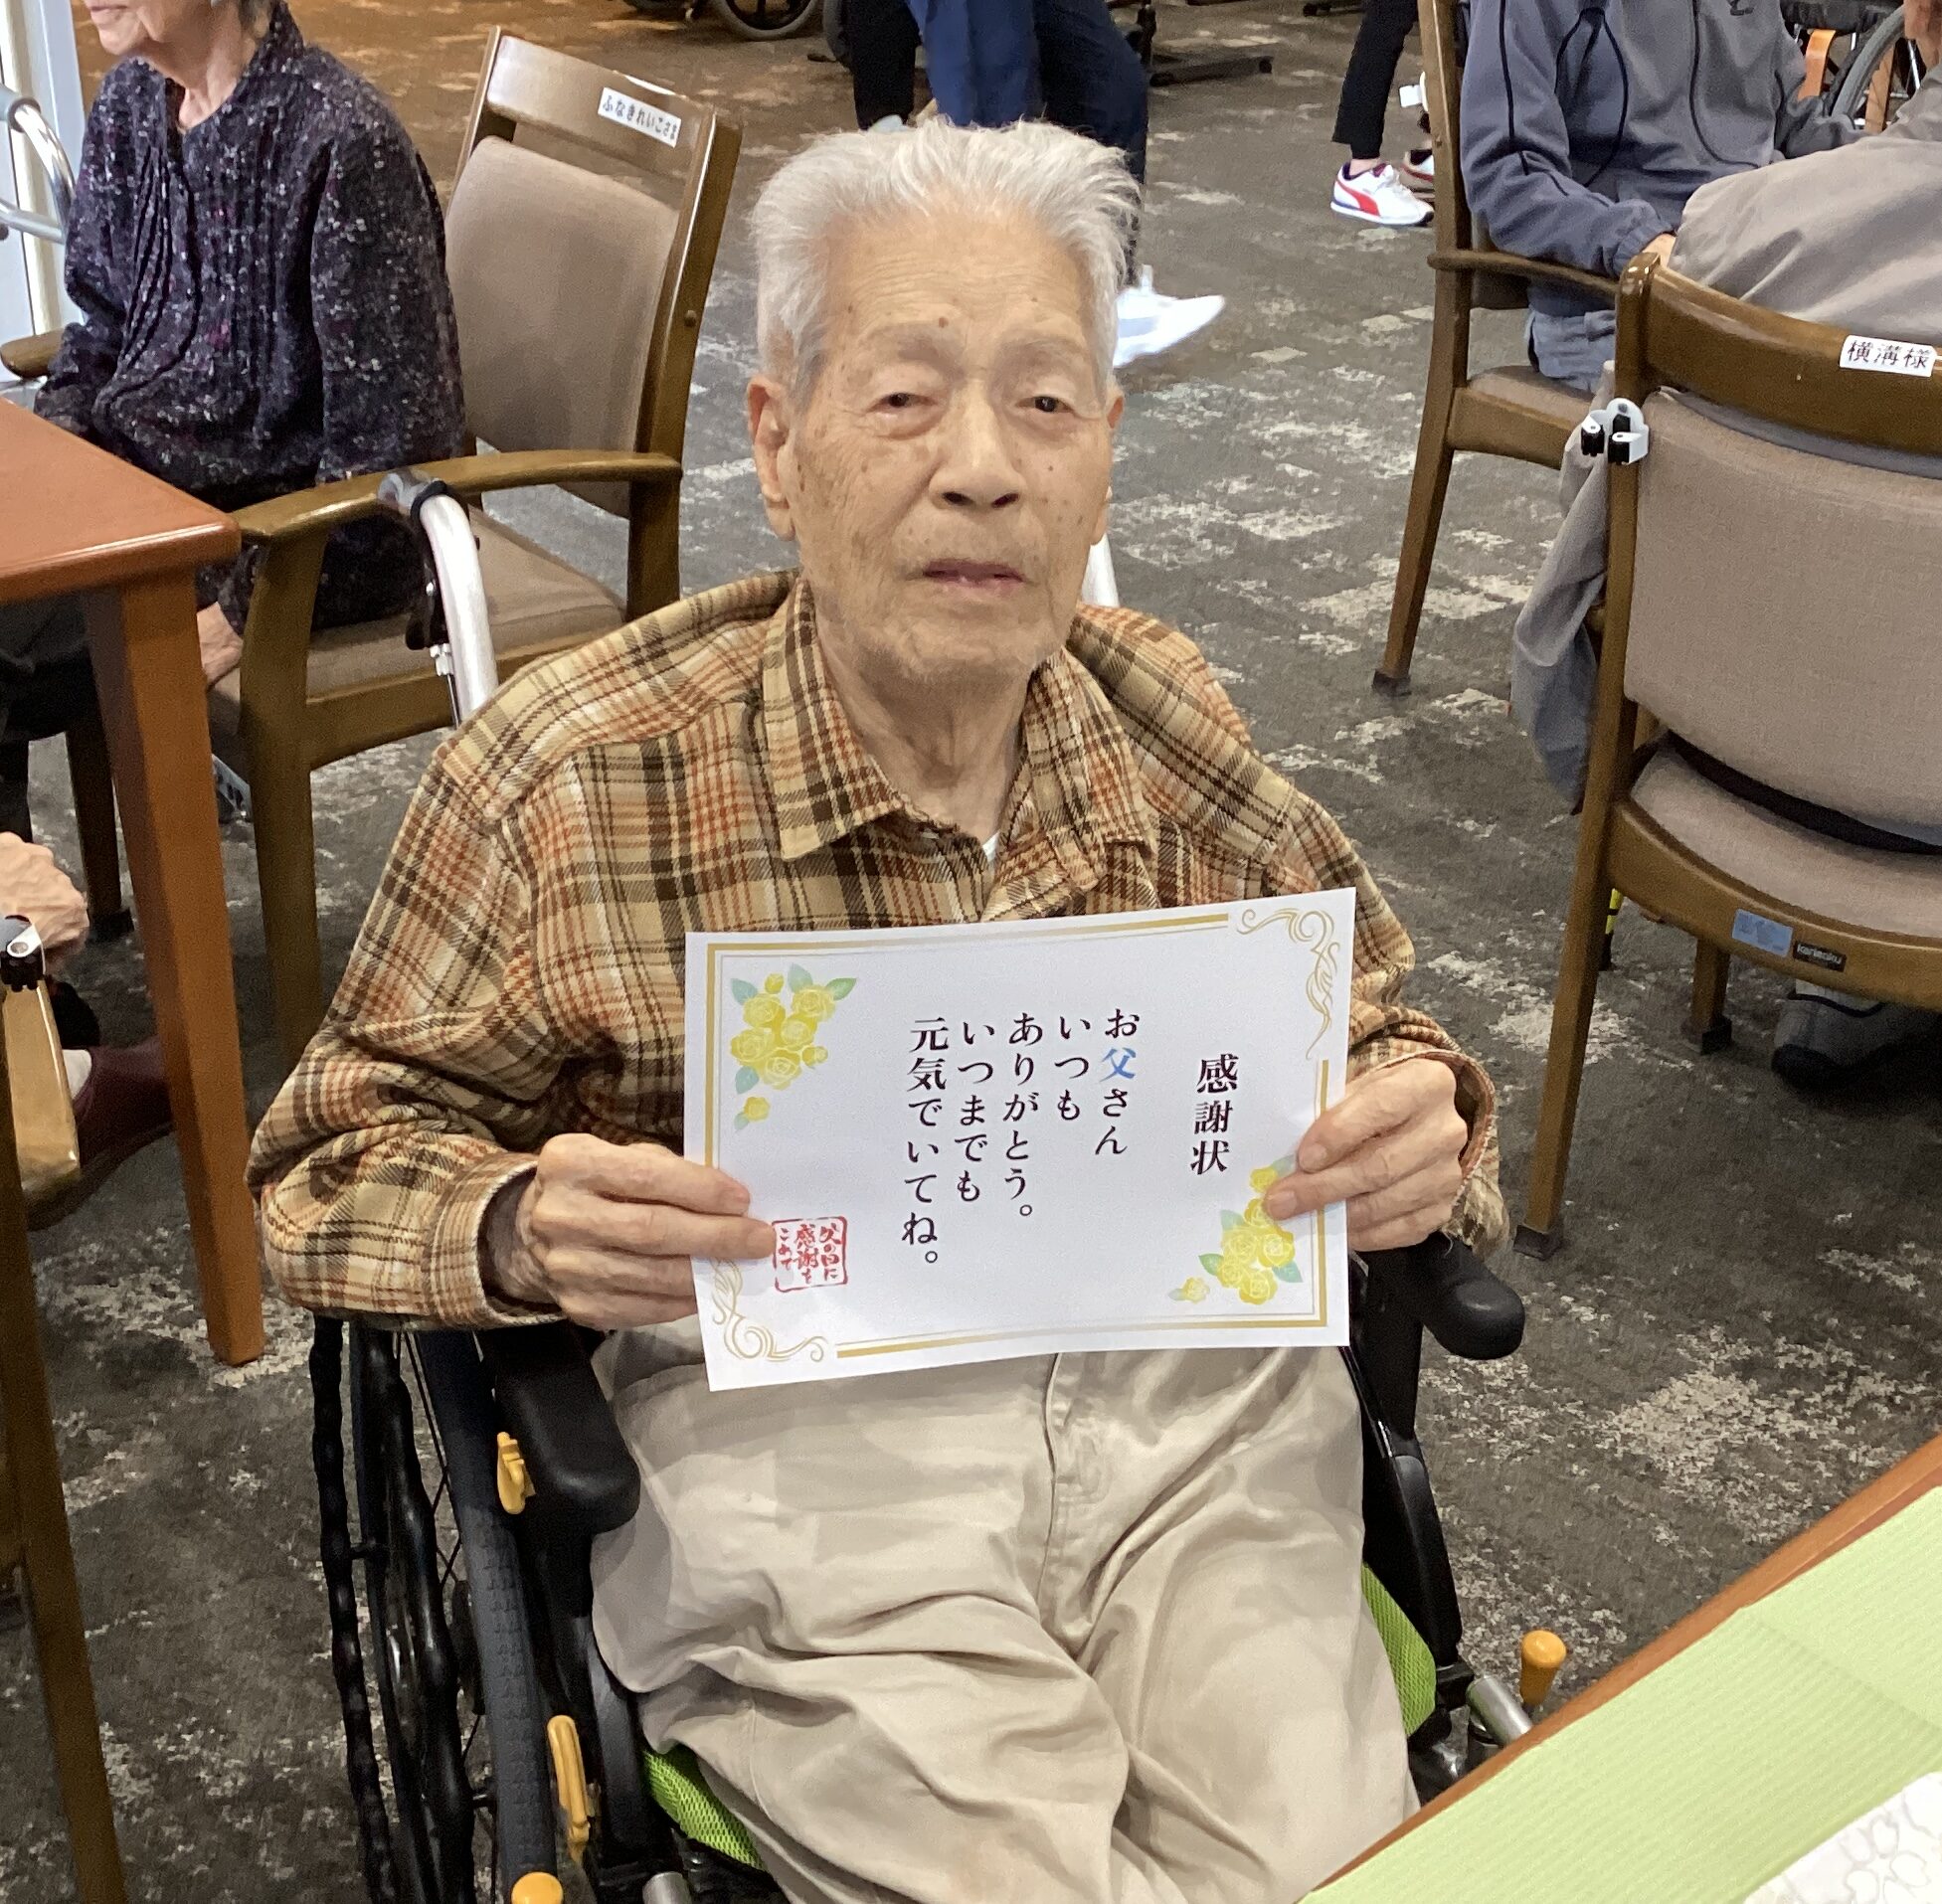 感謝状
お父さん
いつも
ありがとう。
いつまでも
元気でいてね。
父の日に
感謝を
こめて
ふなきれいこさま
横溝様
karimoku